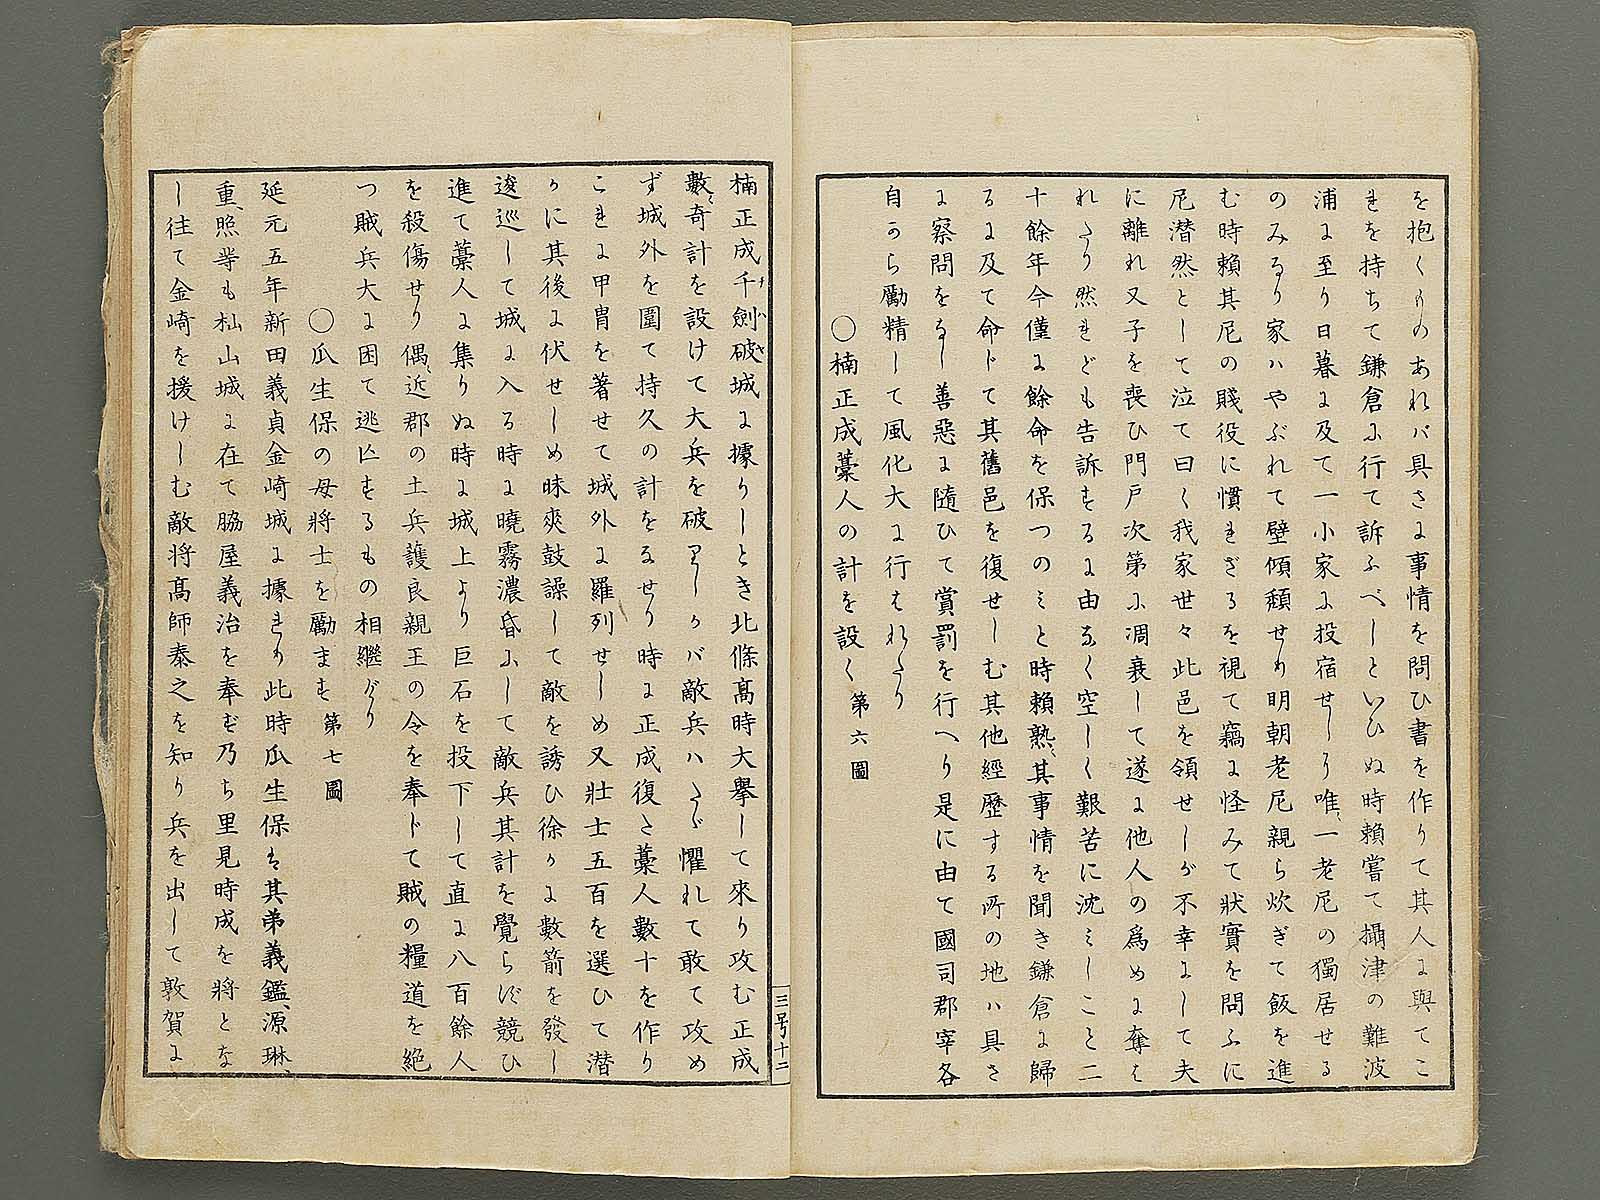 を抱くものあれバ具さに事情を問ひ書を作りて其人に與てこ
れを持ちて鎌倉に行て訴ふべしといひぬ時頼嘗て攝津の難波
浦に至り日暮に及て一小家に投宿せしり唯、一老尼の獨居せる
のみなり家ハやぶれて壁傾頽せり明朝老尼親ら炊ぎて飯を進
む時頼其尼の賤役に慣れざるを視て竊に怪みて狀實を問ふに
尼潜然として泣て曰く我家世々此邑を領せしが不幸にして夫
に離れ又子を喪ひ門戸次第に凋衰して遂に他人の爲めに奪は
れたり然れども告訴するに由なく空しく艱苦に沈ミしこと二
十餘年今僅に餘命を保つのミと時頼熟、其事情を聞き鎌倉に歸
るに及て命じて其舊邑を復せしむ其他經歷する所の地ハ具さ
に察問をなし善惡に隨ひて賞罰を行へり是に由て國司郡宰各
自から勵精して風化大に行はれたり
〇楠正成藁人の計を設く 第六圖
楠正成千劍破城に據りしとき北條高時大擧して來り攻む正成
數、奇計を設けて大兵を破りしかバ敵兵ハたゞ懼れて敢て攻め
ず城外を圍て持久の計をなせり時に正成復た藁人數十を作り
これに甲冑を著せて城外に羅列せしめ又壯士五百を選ひて潜
かに其後に伏せしめ昧爽鼓譟して敵を誘ひ徐かに數箭を發し
逡巡して城に入る時に曉霧濃昏にして敵兵其計を覺らず競ひ
進て藁人に集りぬ時に城上より巨石を投下して直に八百餘人
を殺傷せり偶、近郡の土兵護良親王の令を奉じて賊の糧道を絶
つ賊兵大に困て逃亡するもの相繼げり
〇瓜生保の母將士を勵ます 第七圖
延元五年新田義貞金崎城に據れり此時瓜生保は其弟義鑑、源琳、
重照等も杣山城に在て脇屋義治を奉ず乃ち里見時成を將とな
し往て金崎を援けしむ敵将高師泰之を知り兵を出して敦賀に
三号十二